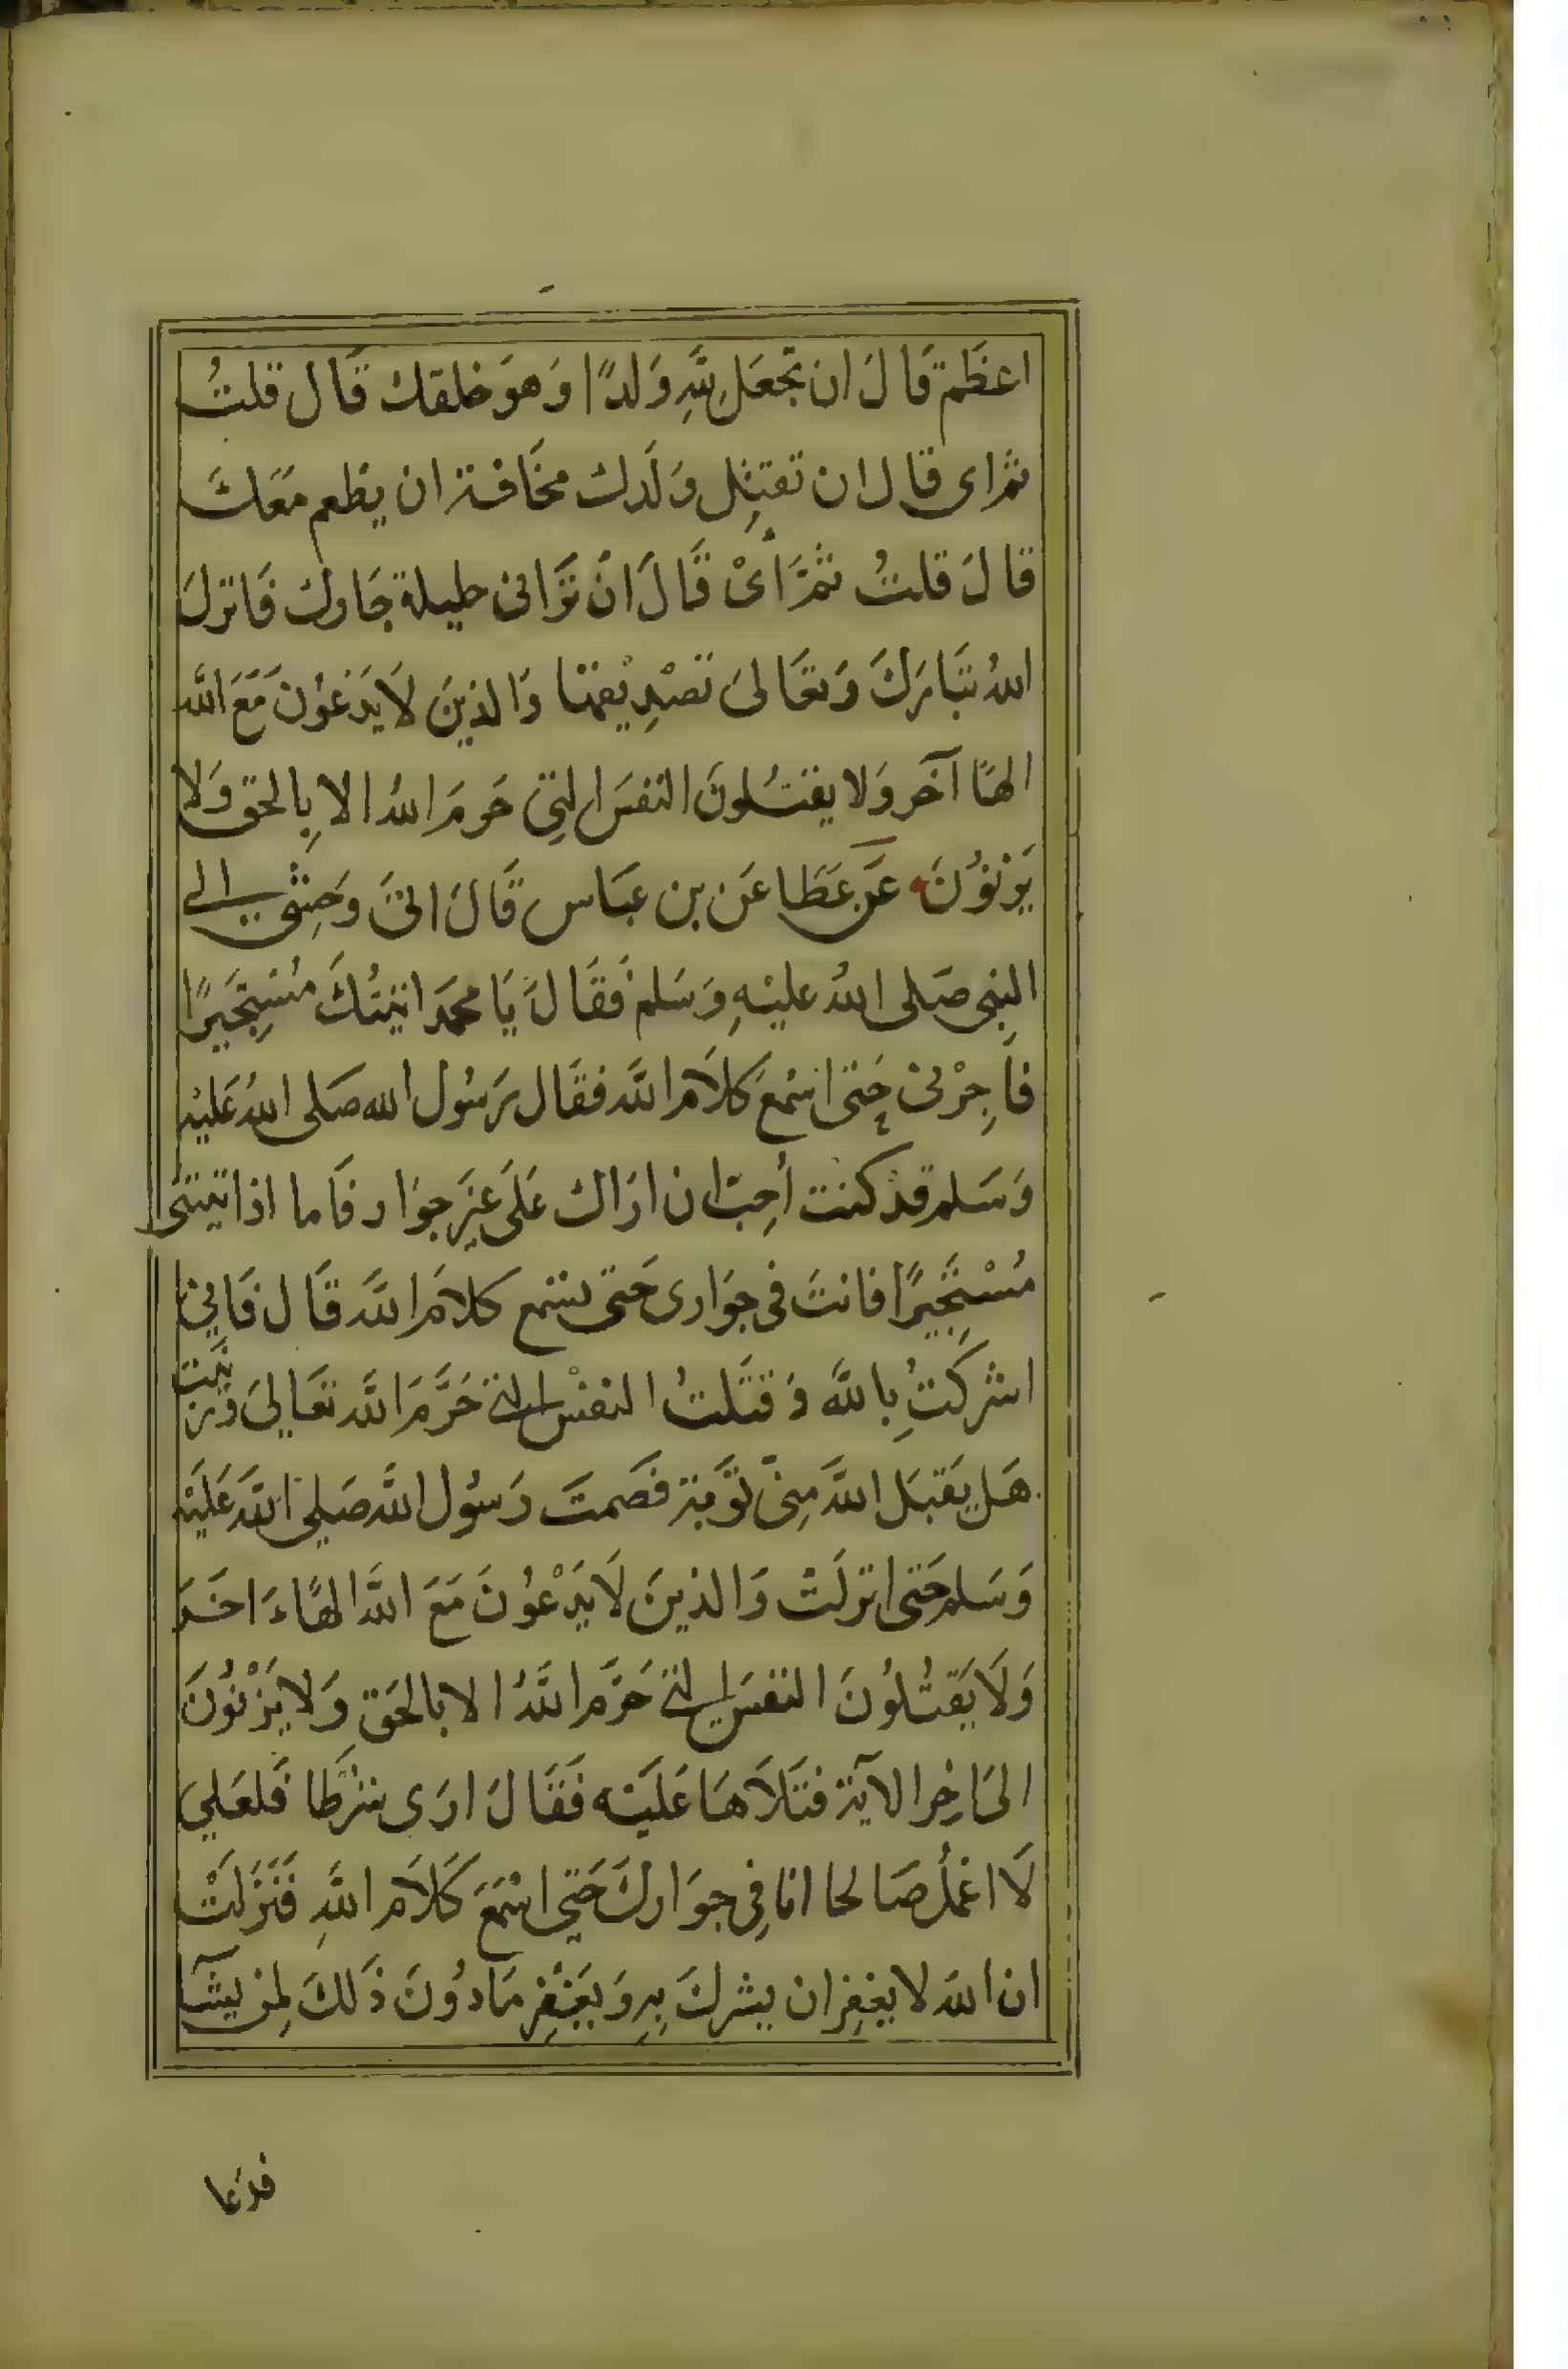 اعظَم قَالَ ان تجعَل لِلَّهِ وَلدًا وَهوَ خلقك قَال قلتُ
ثم اى قال ان تقتِل وَلَدك مخَافة ان يطعم مَعَكَ
قالَ قلتُ ثمَّ اىْ قَالَ انْ تزَانى حليلة جَارك فَانزلَ
اللهُ تبَارَكَ وَتعَالىَ تصْدِيْقهَا وَالذينَ لَا يَدْعُوْنَ مَعَ اللَّه
الهًا آخَر وَلا يقتُلونَ النفسَ التِى حَرمَ اللهُ الا بِالحق وَلا
يَزنوُنَ عَن عَطَا عَن بن عبَاس قَالَ اتىَ وَحِشى الى
النبِى صَلى اللهُ عليْهِ وَسَلم فَقَالَ يَا محمَد اتيتُكَ مُسْتِجَيرًا
فاَجِرْنى حَتى اسْمعَ كلاَم اللَّه فقَال رَسُول الله صَلى اللهُ عَليْه
وَسَلم قدْ كنت أحِبّ ان ارَاك عَلَى غيَر جوَار فَاما اذا تيتنى
مُسْتَجِيرًا فانتَ فى جوَارى حَتى تسمع كلَامَ اللَّه قَال فَانِى
اشركتُ بِاللَّه وَقتَلتُ النفسْ التى حَرَّمَ اللَّه تعَالىَ وَزنَيت
هَل يَقبَل اللَّهَ مِنّى تَوَبة فصَمتَ رَسُول اللَّه صَلى اللَّهَ عَلَيْه
وَسَلم حَتى انزلَتْ وَالذينَ لَا يَدْعُوْنَ مَعَ اللَّه الهًاءَ اخَر
وَلَا يَقتُلوُنَ النفسَ التى حَرَّم اللَّهُ الا بالحَق وَلا يَزْنوُنَ
الىَ اخِر الآية فتَلَاهَا عَلَيْه فَقَالَ ارَى شرْطًا فَلعَلىَ
لَا اعْمَل صَالحا انا فِى جوَاركَ حَتى اسْمَعَ كَلَام اللَّهِ فَنَزلَتْ
ان اللهَ لا يغفِر ان يشركَ بِهِ وَيَغفِر مَا دوُنَ ذَلكَ لِمن يشآ
فدَعا